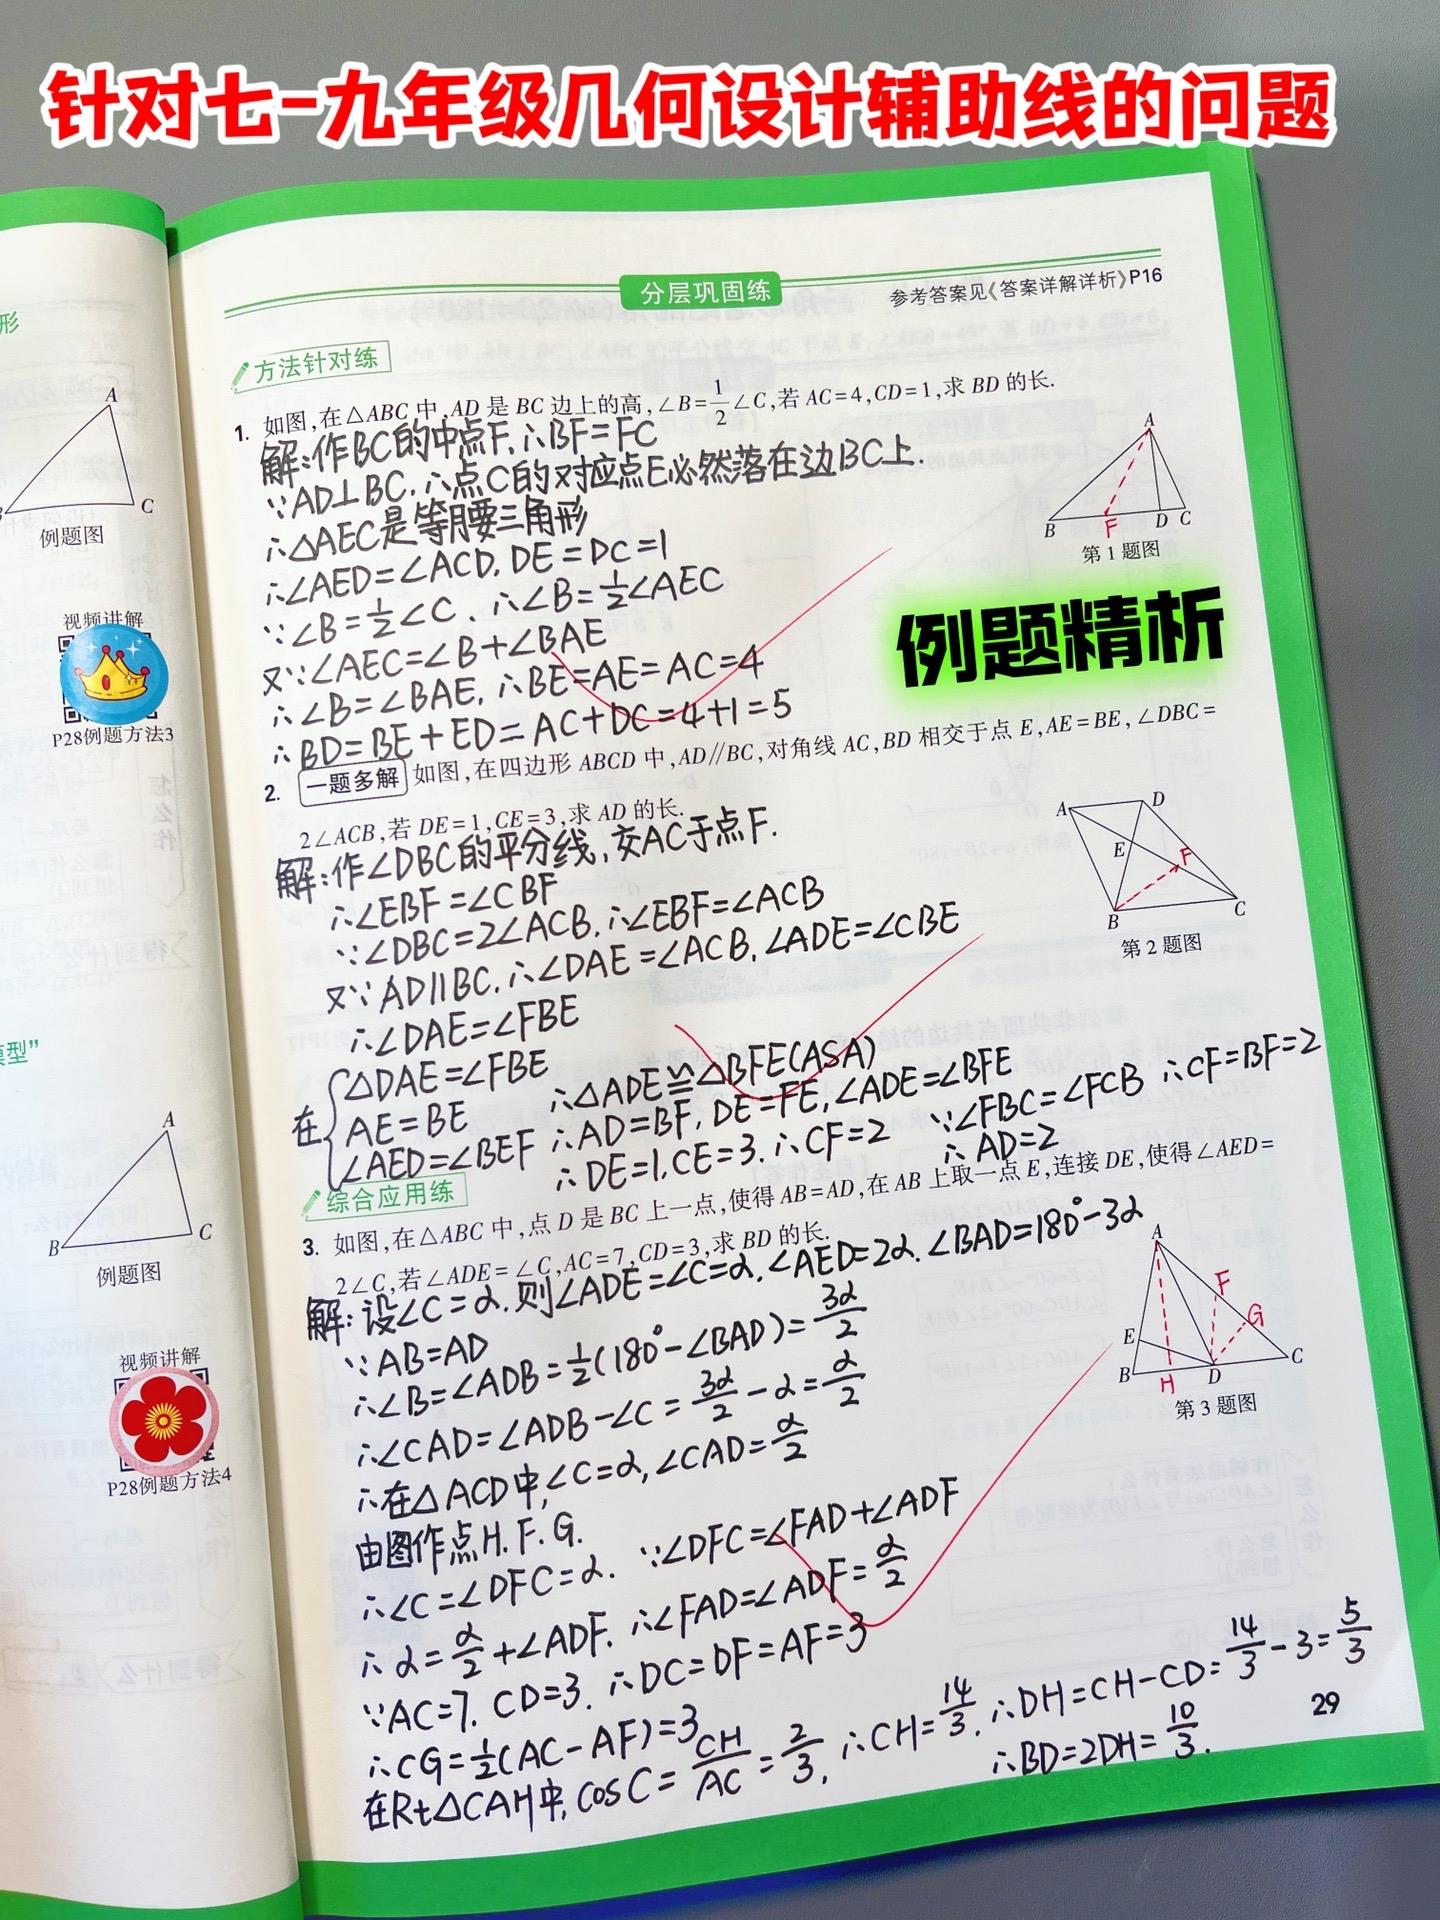 针对七-九年级几何设计辅助线的问题
分层巩固练
参考答案见《答案详解详析》P16
形
A
C
例题图
视频讲解
P28例题方法3
模型”
A
B
C
例题图
视频讲解
P28例题方法4
方法针对练
1. 如图,在△ABC中,AD是BC边上的高,∠B=1/2∠C,若AC=4,CD=1,求BD的长.
解:作BC的中点F,∴BF=FC
∵AD⊥BC,∴点C的对应点E必然落在边BC上.
∴△AEC是等腰三角形
∴∠AED=∠ACD,DE=DC=1
∵∠B=1/2∠C,∴∠B=1/2∠AEC
又∵∠AEC=∠B+∠BAE
∴∠B=∠BAE,∴BE=AE=AC=4
∴BD=BE+ED=AC+DC=4+1=5
A
B
F
D
C
第1题图
例题精析
2. 一题多解 如图,在四边形ABCD中,AD//BC,对角线AC,BD相交于点E,AE=BE,∠DBC=
2∠ACB,若DE=1,CE=3,求AD的长.
解:作∠DBC的平分线,交AC于点F.
∴∠EBF=∠CBF
∵∠DBC=2∠ACB,∴∠EBF=∠ACB
又∵AD∥BC,∴∠DAE=∠ACB,∠ADE=∠CBE
∴∠DAE=∠FBE
在{△DAE=∠FBE
AE=BE
∠AED=∠BEF
∴△ADE≌△BFE(ASA)
∴AD=BF,DE=FE,∠ADE=∠BFE
∴DE=1,CE=3,∴CF=2
∵∠FBC=∠FCB ∴CF=BF=2
∴AD=2
A
D
E
F
B
C
第2题图
综合应用练
3. 如图,在△ABC中,点D是BC上一点,使得AB=AD,在AB上取一点E,连接DE,使得∠AED=
2∠C,若∠ADE=∠C,AC=7,CD=3,求BD的长.
解:设∠C=α,则∠ADE=∠C=α,∠AED=2α,∠BAD=180°-3α
∵AB=AD
∴∠B=∠ADB=1/2(180°-∠BAD)=3α/2
∴∠CAD=∠ADB-∠C=3α/2-α=α/2
∴在△ACD中,∠C=α,∠CAD=α/2
由图作点H.F.G.
∴∠C=∠DFC=α. ∵∠DFC=∠FAD+∠ADF
∴α=α/2+∠ADF,∴∠FAD=∠ADF=α/2
∵AC=7,CD=3,∴DC=DF=AF=3
∴CG=1/2(AC-AF)=3
在Rt△CAH中,cosC=CH/AC=2/3,∴CH=14/3,∴DH=CH-CD=14/3-3=5/3
∴BD=2DH=10/3.
A
F
G
E
B
H
D
C
第3题图
29